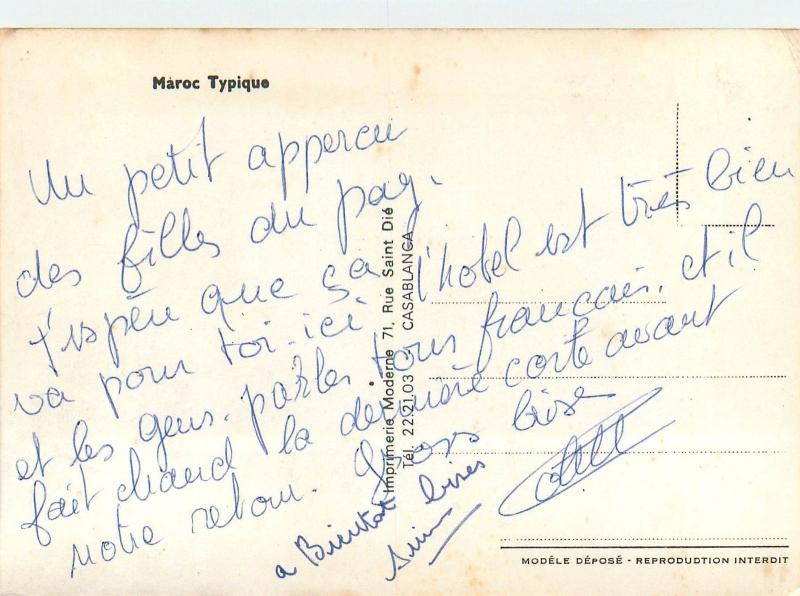 Maroc Typique
Un petit apperçu
des filles du pay.
J'espère que ça
va pour toi. ici l'hotel est très bien
et les gens. parles tous français. et il
fait chaud la dernière carte avant
notre retour. Gros bise
a Bientot bises
Imprimerie Moderne 71, Rue Saint Dié
Tél. 22.21.03 CASABLANCA
MODÈLE DÉPOSÉ - REPRODUCTION INTERDIT